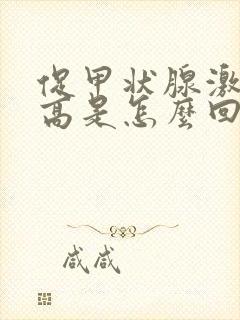 促甲状腺激
高是怎麼回
咸咸